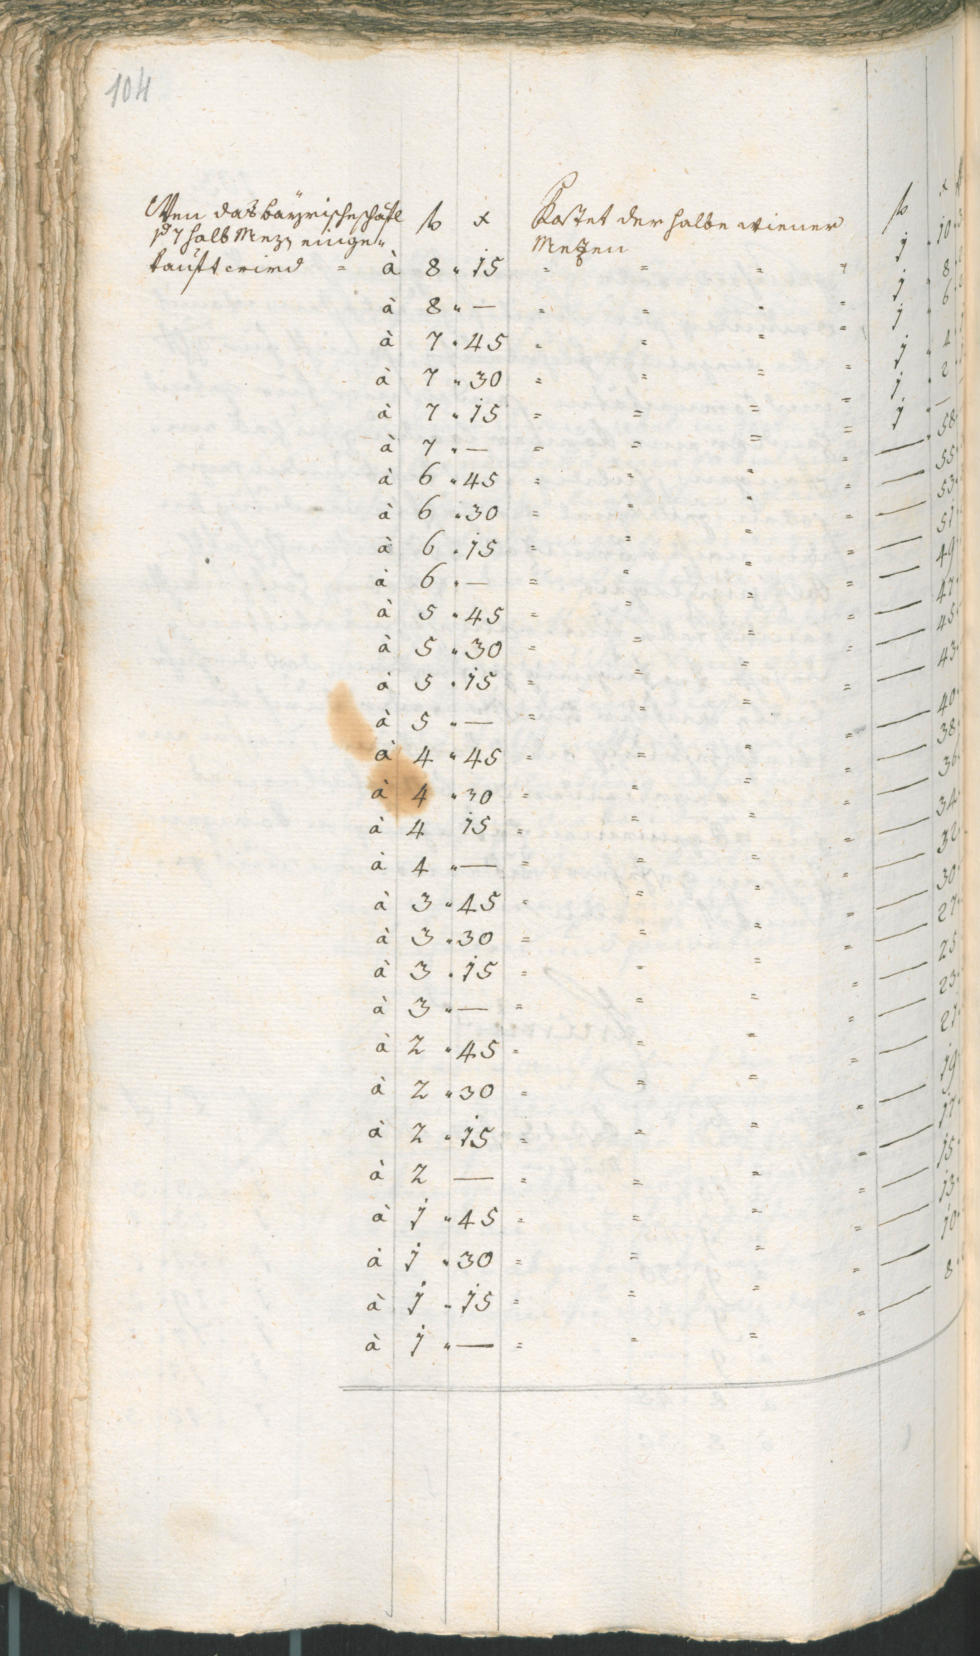 104
Wen das baÿrische schäfl fl x Kostet der halbe wiener fl x
pr 7 halb Mezn einge„ Metzen
kauft wird = à 8 „ 15 = = = = 1 „ 10
à 8 „ — = = = = 1 „ 8
à 7 „ 45 = = = = 1 „ 6
à 7 „ 30 = = = = 1 „ 4
à 7 „ 15 = = = = 1 „ 2
à 7 „ — = = = = 1 „ —
à 6 „ 45 = = = = — 58
à 6 „ 30 = = = = — 55
à 6 „ 15 = = = = — 53
à 6 „ — = = = = — 51
à 5 „ 45 = = = = — 49
à 5 „ 30 = = = = — 47
à 5 „ 15 = = = = — 45
à 5 „ — = = = = — 43
à 4 „ 45 = = = = — 40
à 4 „ 30 = = = = — 38
à 4 15 = = = = — 36
à 4 „ — = = = = — 34
à 3 „ 45 = = = = — 32
à 3 „ 30 = = = = — 30
à 3 „ 15 = = = = — 27
à 3 „ — = = = = — 25
à 2 „ 45 = = = = — 23
à 2 „ 30 = = = = — 21
à 2 „ 15 = = = = — 19
à 2 — = = = = — 17
à 1 „ 45 = = = = — 15
à 1 „ 30 = = = = — 13
à 1 „ 15 = = = = — 10
à 1 „ — = = = = — 8